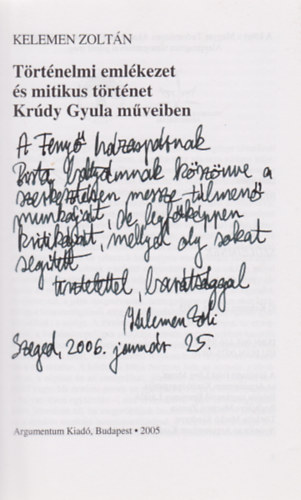 KELEMEN ZOLTÁN
Történelmi emlékezet
és mitikus történet
Krúdy Gyula műveiben
A Fenyő házaspárnak
bátyámnak köszönve a
szerkesztésen messze túlmenő
munkáját, de legfőképpen
kritikáját, mellyel oly sokat
segített
tisztelettel, barátsággal
Kelemen Zoli
Szeged, 2006. január 25.
Argumentum Kiadó, Budapest • 2005